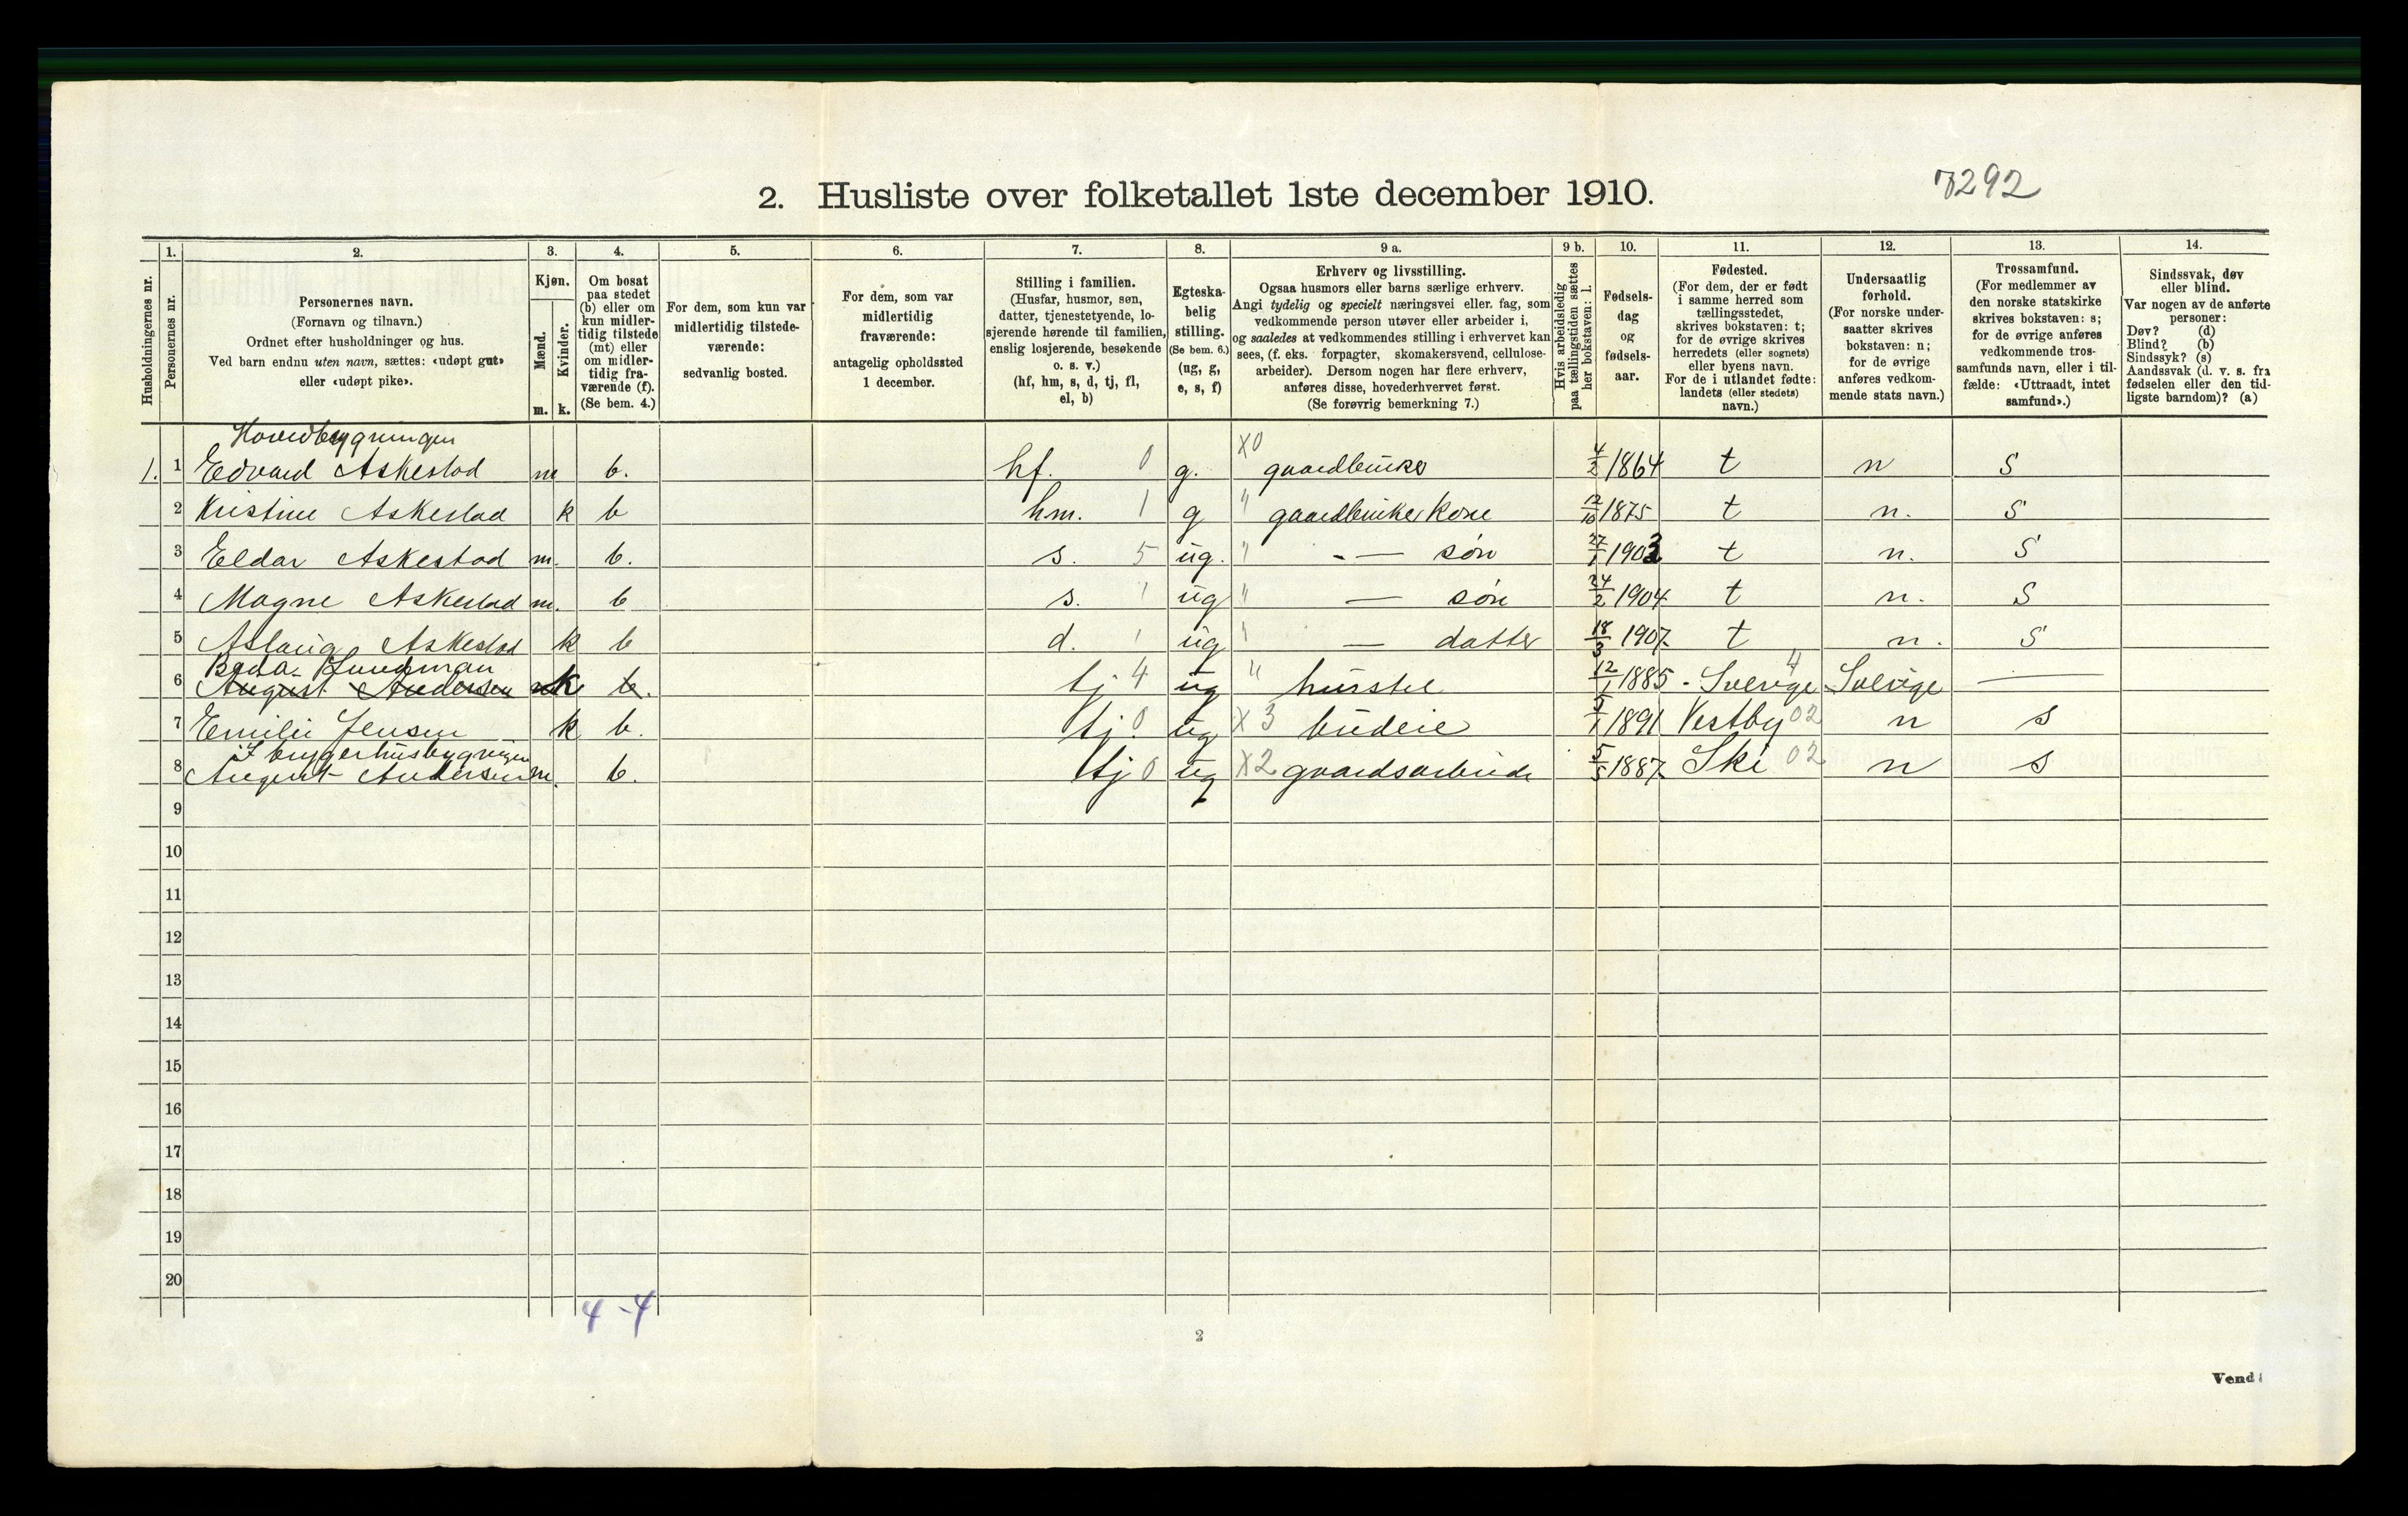 2. Husliste over folketallet 1ste december 1910.
7292
Husholdningernes nr.
1. Personernes nr.
2. Personernes navn.
(Fornavn og tilnavn.)
Ordnet efter husholdninger og hus.
Ved barn endnu uten navn, sættes: «udøpt gut»
eller «udøpt pike».
3. Kjøn.
Mænd. Kvinder.
m. k.
4. Om bosat
paa stedet
(b) eller om
kun midler-
tidig tilstede
(mt) eller
om midler-
tidig fra-
værende (f).
(Se bem. 4.)
5. For dem, som kun var
midlertidig tilstede-
værende:
sedvanlig bosted.
6. For dem, som var
midlertidig
fraværende:
antagelig opholdssted
1 december.
7. Stilling i familien.
(Husfar, husmor, søn,
datter, tjenestetyende, lo-
sjerende hørende til familien,
enslig losjerende, besøkende
o. s. v.)
(hf, hm, s, d, tj, fl,
el, b)
8. Egteska-
belig
stilling.
(Se bem. 6.)
(ug, g,
e, s, f)
9 a. Erhverv og livsstilling.
Ogsaa husmors eller barns særlige erhverv.
Angi tydelig og specielt næringsvei eller. fag, som
vedkommende person utøver eller arbeider i,
og saaledes at vedkommendes stilling i erhvervet kan
sees, (f. eks. forpagter, skomakersvend, cellulose-
arbeider). Dersom nogen har flere erhverv,
anføres disse, hovederhvervet først.
(Se forøvrig bemerkning 7.)
9 b. Hvis arbeidsledig
paa tællingstiden sættes
her bokstaven: l.
10. Fødsels-
dag
og
fødsels-
aar.
11. Fødested.
(For dem, der er født
i samme herred som
tællingsstedet,
skrives bokstaven: t;
for de øvrige skrives
herredets (eller sognets)
eller byens navn.
For de i utlandet fødte:
landets (eller stedets)
navn.)
12. Undersaatlig
forhold.
(For norske under-
saatter skrives
bokstaven: n;
for de øvrige
anføres vedkom-
mende stats navn.)
13. Trossamfund.
(For medlemmer av
den norske statskirke
skrives bokstaven: s;
for de øvrige anføres
vedkommende tros-
samfunds navn, eller i til-
fælde: «Uttraadt, intet
samfund».)
14. Sindssvak, døv
eller blind.
Var nogen av de anførte
personer:
Døv? (d)
Blind? (b)
Sindssyk? (s)
Aandssvak (d. v. s. fra
fødselen eller den tid-
ligste barndom)? (a)
Hovedbygningen
1. 1 Edvard Askestad m b. hf. 0 g. X0 gaardbruker 4/2 1864 t n S
2 Kristine Askestad k b hm. 1 g " gaardbruker kone 12/10 1875 t n. S
3 Eldar Askestad m. b. s. 5 ug. " - — søn 27/1 1903 t n. S
4 Magne Askestad m. b s. ' ug " — søn 24/2 1904 t n. S
5 Aslaug Askestad k b d. ' ug " — datter 18/3 1907 t n. S
Beda Lundman
6 August Andersen k b. tj 4 ug " husstel 12/1 1885 - Sverige 4 Sverige —
7 Emilie Jensen k b. tj. 0 ug X 3 budeie 5/1 1891 Vestby 02 n s
I bryggerhusbygningen
8 August Andersen m. b. tj 0 ug X2 gaardsarbeide 5/5 1887 Ski 02 n s
9
10
11
12
13
14
15
16
17
18
19
20
4 - 4
2
Vend!